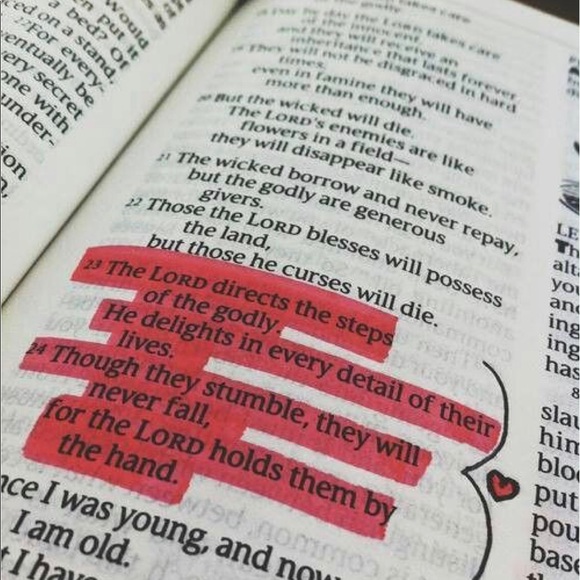 Would
en put it
a bed? Or
ced on a stand,
22 For every-
entually be
ery secret
one with
under-
ion
takes care
day the LORD takes care
of the innocent,
and they will receive an
inheritance that lasts forever.
19 They will not be disgraced in hard
times;
even in famine they will have
more than enough.
20 But the wicked will die.
The LORD'S enemies are like
flowers in a field—
they will disappear like smoke.
21 The wicked borrow and never repay,
but the godly are generous
givers.
22 Those the LORD blesses will possess
the land,
but those he curses will die.
23 The LORD directs the steps
of the godly.
He delights in every detail of their
lives.
24 Though they stumble, they will
never fall,
for the LORD holds them by
the hand.
nce I was young, and now
I am old.
t I have
LE
Th
alt
you
and
ing
ing
has
8
slau
him
bloo
put
pou
base